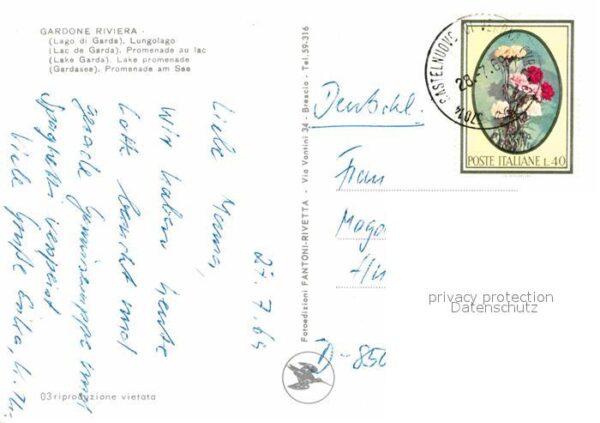 GARDONE RIVIERA -
(Lago di Garda). Lungolago
(Lac de Garda). Promenade au lac
(Lake Garda). Lake promenade
(Gardasee). Promenade am See
27.7.69
Liebe Mama,
wir haben heute
Lotte besucht und
gerade Gemüsesuppe und
Spaghetti verspeist
Viele Grüße
03 riproduzione vietata
Fotoedizioni FANTONI-RIVETTA - Via Vantini 34 - Brescia - Tel. 59-316
CASTELNUOVO DI
28-7-69
POSTE ITALIANE L.40
Deutschl.
Frau
D-850
privacy protection
Datenschutz